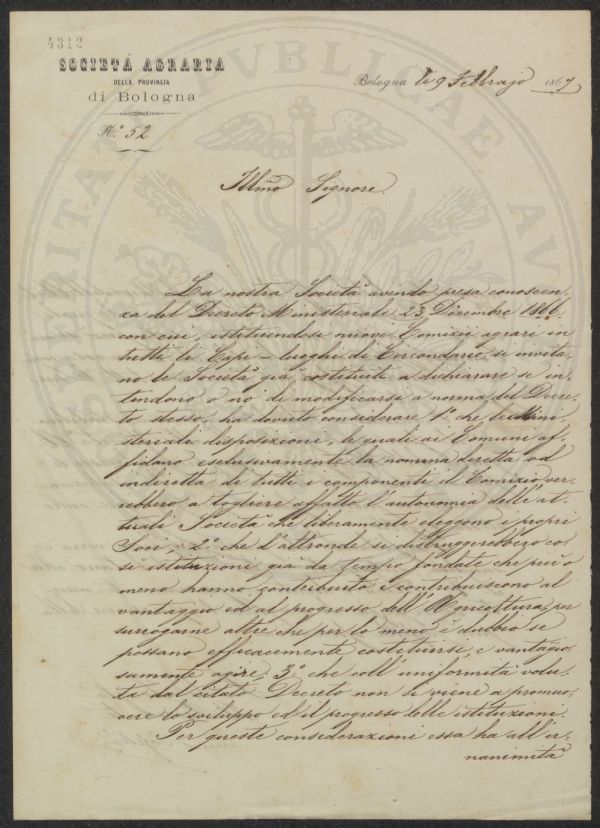 4312
SOCIETÀ AGRARIA
DELLA PROVINCIA
di Bologna
N.° 52
Bologna li 9 Febbrajo 1867
Illmo Signore
La nostra Società avendo presa conoscen-
za del Decreto Ministeriale 23 Dicembre 1866
con cui, istituendosi nuovi Comizii agrari in
tutti li Capi-luoghi di Circondario, si invita-
no le Società già costituite a dichiarare se in-
tendono o nò di modificarsi a norma del Decre-
to stesso, ha dovuto considerare 1° che le Mini
steriali disposizioni, le quali ai Comuni af-
fidano esclusivamente la nomina diretta od
indiretta di tutti i componenti il Comizio ver-
rebbero a togliere affatto l'autonomia delle at-
tuali Società che liberamente eleggono i propri
Soci; 2° che d'altronde si distruggerebbero co-
sì istituzioni già da tempo fondate che più o
meno hanno contribuito e contribuiscono al
vantaggio ed al progresso dell'Agricoltura per
surrogarne altre che per lo meno è dubbio se
possano efficacemente costituirsi, e vantagio-
samente agire; 3° che coll'uniformità volu-
ta dal citato Decreto non si viene a promuo-
vere lo sviluppo ed il progresso delle istituzioni.
Per queste considerazioni essa ha all'u-
nanimità